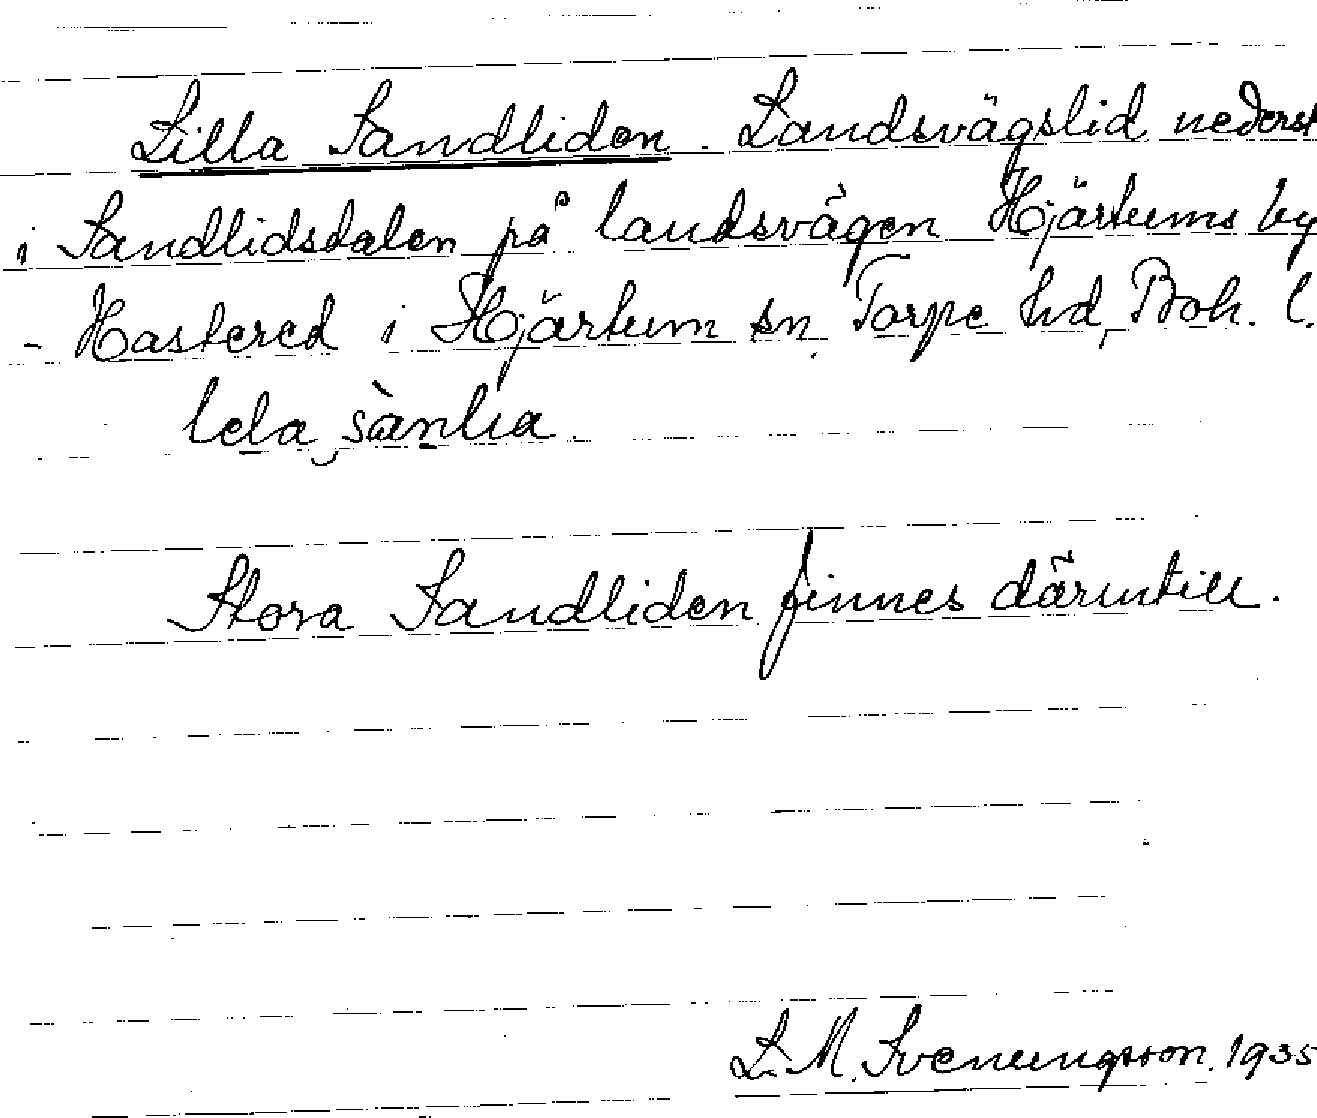 Lilla Sandliden. Landsvägslid nederst
i Sandlidsdalen på landsvägen Hjärtums by
- Hastered i Hjärtum sn, Torpe hd, Boh. l.
lela sànlia.
Stora Sandliden finnes därintill.
S. M. Svenungsson. 1935